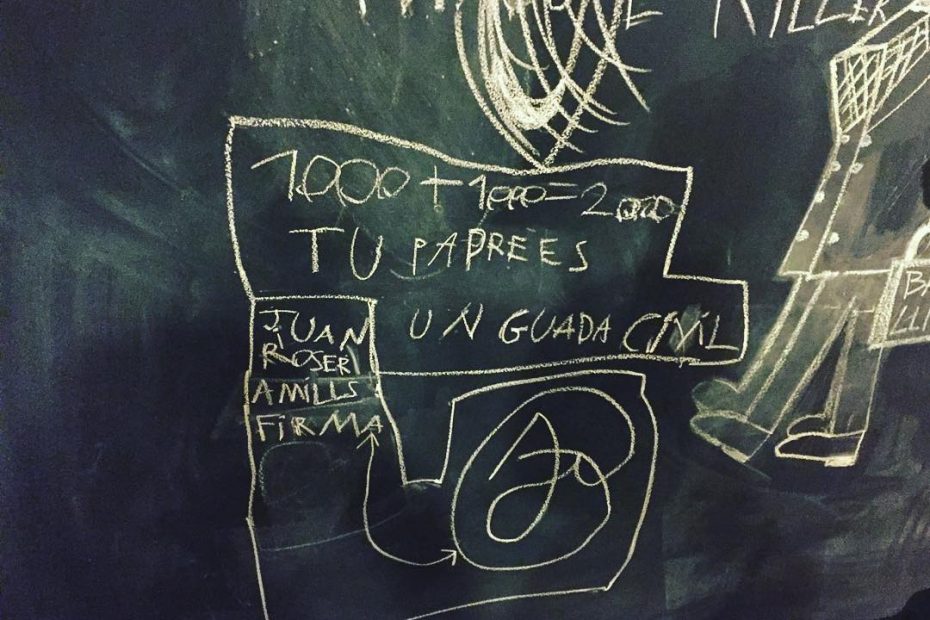 KILLER
1000 + 1000 = 2000
TU PADRE ES
UN GUADA CIVIL
JUAN
ROSER
AMILLS
FIRMA